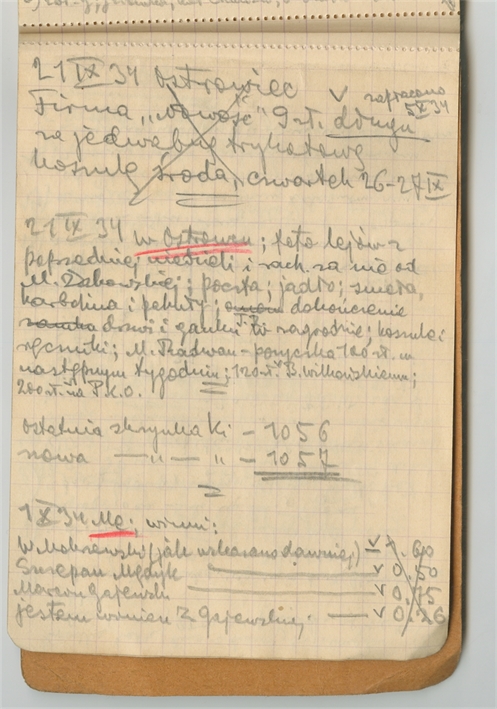 21 IX 34 Ostrowiec
zapłacono
5 X 34
Firma „Nowość” 9 zł. długu
za jedwabną trykotową
koszulę środa, czwartek 26-27 IX
21 IX 34 w Ostrowcu; foto lejów z
poprzedniej niedzieli i rach. za nie od
M. ; poczta; jadło; smoła,
karbolina i pakuły; dokończenie
drzwi i ganku w zagrodzie; koszule i
ręczniki; M. Radwan - pożyczka 100 zł. w
następnym tygodniu; 120 zł. B. Witkowskiemu;
200 zł. na P.K.O.
ostatnia skrzynka Ki - 1056
nowa — „ — „ - 1057
1 X 34 Mę, winni:
W. (jak wskazano dawniej) - v 4.60
Szczepan Mędyk v 0.50
Marcin Gajewski v 0.15
jestem winien Z. Gajewskiej - v 0.26